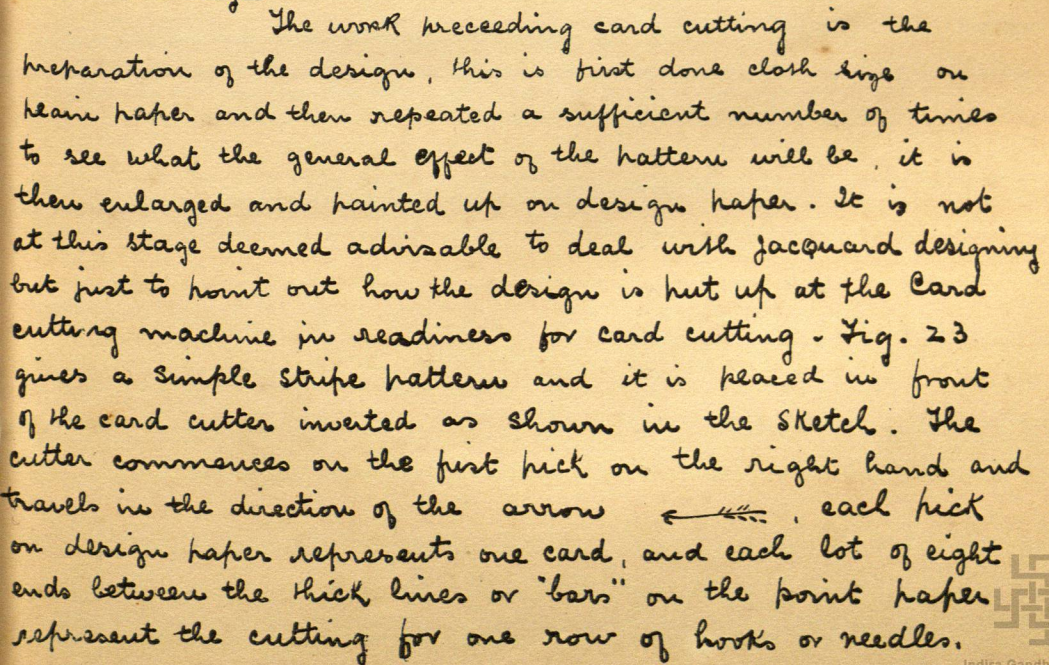 The work preceeding card cutting is the
preparation of the design, this is first done cloth size on
plain paper and then repeated a sufficient number of times
to see what the general effect of the pattern will be, it is
then enlarged and painted up on design paper. It is not
at this stage deemed advisable to deal with Jacquard designing
but just to point out how the design is put up at the Card
cutting machine in readiness for card cutting. Fig. 23
gives a Simple Stripe pattern and it is placed in front
of the card cutter inverted as shown in the Sketch. The
cutter commences on the first pick on the right hand and
travels in the direction of the arrow , each pick
on design paper represents one card, and each lot of eight
ends between the thick lines or "bars" on the point paper
represent the cutting for one row of hooks or needles.